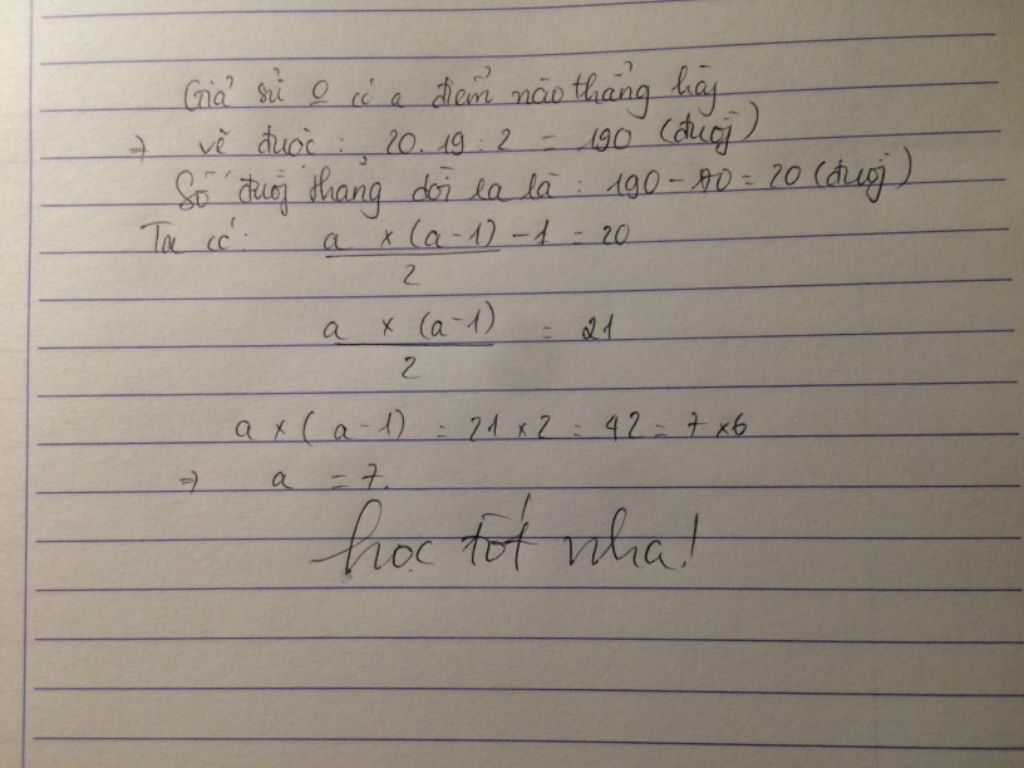 Giả sử O có a điểm nào thẳng hàg
=> vẽ được : 20.19:2 = 190 (đườg)
Số đườg thẳng dôi ra là : 190 - 170 = 20 (đườg)
Ta có: a x (a-1) / 2 - 1 = 20
a x (a-1) / 2 = 21
a x (a-1) = 21 x 2 = 42 = 7 x 6
=> a = 7.
học tốt nha!